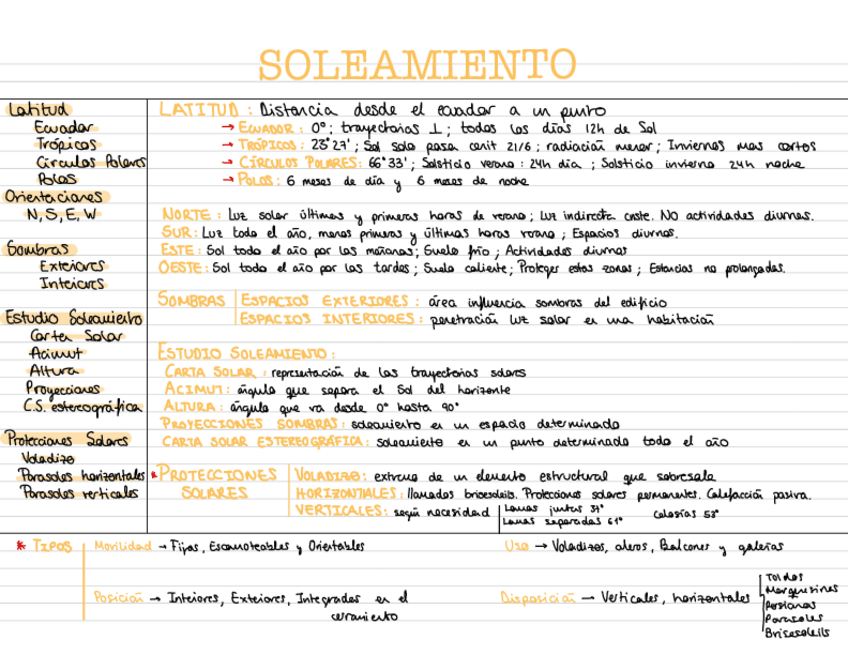 SOLEAMIENTO
Latitud
Ecuador
Trópicos
Círculos Polares
Polos
Orientaciones
N, S, E, W
Sombras
Exteriores
Interiores
Estudio Soleamiento
Carta Solar
Acimut
Altura
Proyecciones
C.S. estereográfica
Protecciones Solares
Voladizo
Parasoles horizontales
Parasoles verticales
LATITUD : Distancia desde el ecuador a un punto
→ ECUADOR : 0°; trayectorias ⊥; todos los días 12h de Sol
→ TRÓPICOS : 23°27'; Sol solo pasa cenit 21/6; radiación menor; Inviernos mas cortos
→ CÍRCULOS POLARES: 66°33'; Solsticio verano : 24h día ; Solsticio invierno 24h noche
→ POLOS : 6 meses de día y 6 meses de noche
NORTE : Luz solar últimas y primeras horas de verano; Luz indirecta cnste. NO actividades diurnas.
SUR: Luz todo el año, menos primeras y últimas horas verano ; Espacios diurnos.
ESTE : Sol todo el año por las mañanas; Suelo frío ; Actividades diurnas
OESTE : Sol todo el año por las tardes; Suelo caliente; Proteger estas zonas ; Estancias no prolongadas.
SOMBRAS | ESPACIOS EXTERIORES : área influencia sombras del edificio
ESPACIOS INTERIORES : penetración luz solar en una habitación
ESTUDIO SOLEAMIENTO :
CARTA SOLAR : representación de las trayectorias solares
ACIMUT: ángulo que separa el Sol del horizonte
ALTURA : ángulo que va desde 0° hasta 90°
PROYECCIONES SOMBRAS: soleamiento en un espacio determinado
CARTA SOLAR ESTEREOGRÁFICA: soleamiento en un punto determinado todo el año
*PROTECCIONES SOLARES
VOLADIZO: extremo de un elemento estructural que sobresale
HORIZONTALES: llamados brisesoleils. Protecciones solares permanentes. Calefacción pasiva.
VERTICALES: según necesidad | Lamas juntas 37° Celosías 58°
Lamas separadas 61°
* TIPOS
Movilidad → Fijas, Escamoteables y Orientables
Uso → Voladizos, aleros, Balcones y galerías
Posición → Interiores, Exteriores, Integrados en el
cerramiento
Disposición → Verticales, horizontales
Toldos
Marquesinas
Persianas
Parasoles
Brisesoleils